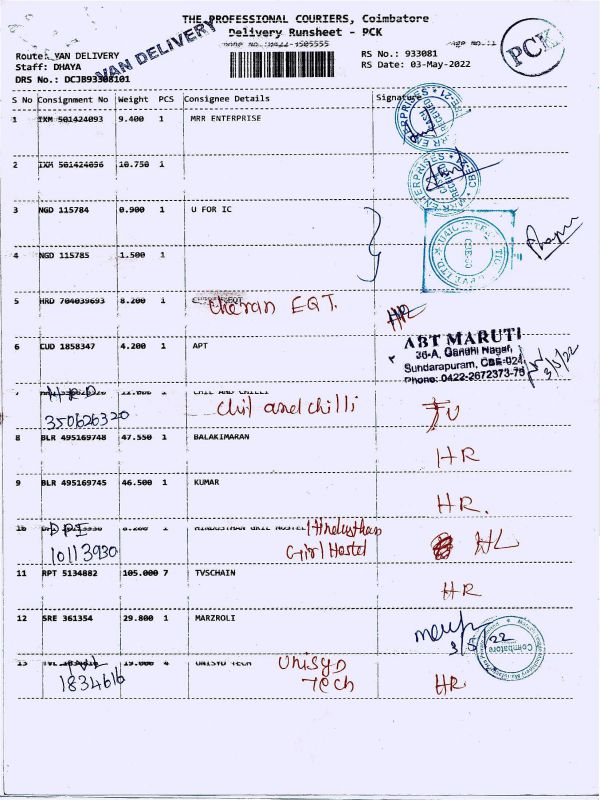 THE PROFESSIONAL COURIERS, Coimbatore
Delivery Runsheet - PCK
VAN DELIVERY
PCK
Route: VAN DELIVERY
Staff: DHAYA
DRS No.: DCJB93308101
RS No.: 933081
RS Date: 03-May-2022
S No Consignment No Weight PCS Consignee Details Signature
1 IXM 501424093 9.400 1 MRR ENTERPRISE
2 IXM 501424096 10.750 1
3 NGD 115784 0.900 1 U FOR IC
4 NGD 115785 1.500 1
5 HRD 704039693 8.200 1 Cheran EQT. HR
6 CUD 1858347 4.200 1 APT
ABT MARUTI
36-A, Gandhi Nagar,
Sundarapuram, CBE-024
Phone: 0422-2672373-76
3/5/22
7 12.000 1 CHIL AND CHILLI
350626320 Chil and chilli
8 BLR 495169748 47.550 1 BALAKIMARAN HR
9 BLR 495169745 46.500 1 KUMAR HR.
10 DPI 1 HINDUSTHAN GRIL HOSTEL Hindusthan
10113930 Girl Hostel HL
11 RPT 5134882 105.000 7 TVSCHAIN HR
12 SRE 361354 29.800 1 MARZROLI
3/5/22
Coimbatore
13 TVL 1834616 19.000 4 UNISYO TECH Unisyo
1834616 Tech HR